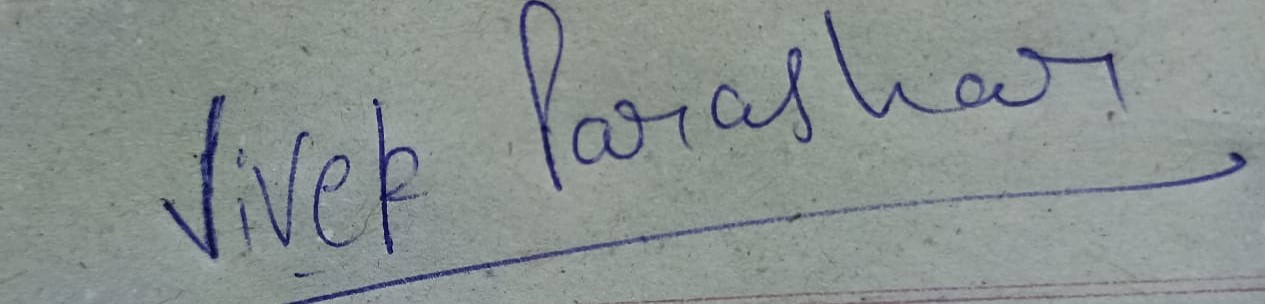 Vivek Parashar